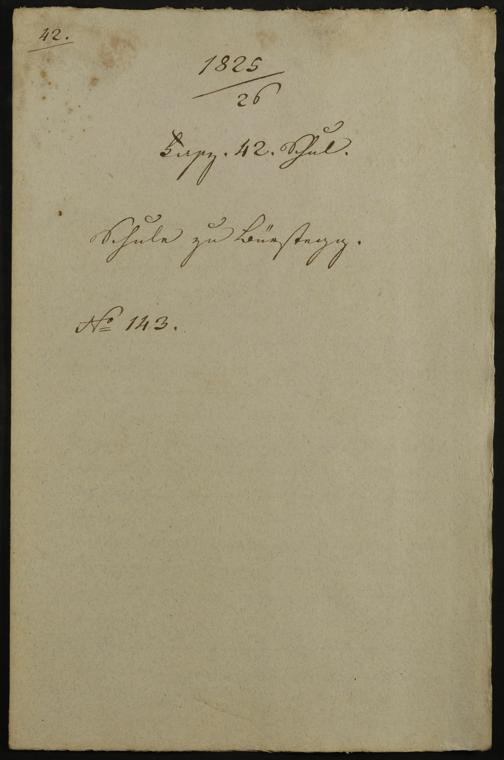 42.
1825
26
42. Schul.
Schule zu Bürstegg.
No 143.